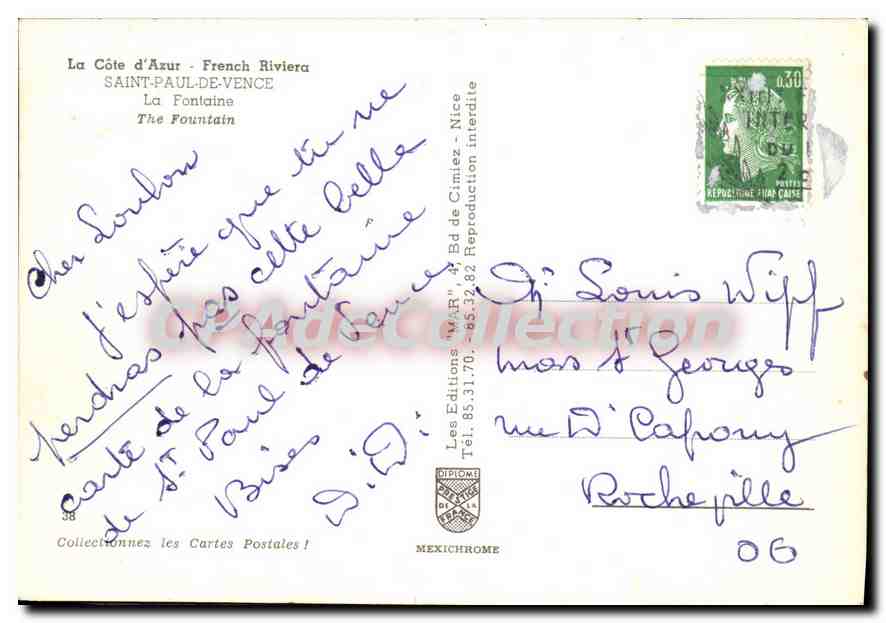 La Côte d'Azur - French Riviera
SAINT-PAUL-DE-VENCE
La Fontaine
The Fountain
Cher Loulou
J'espère que tu ne
perdras pas cette belle
carte de la fontaine
de St Paul de Vence.
Bises
Didi
38
Collectionnez les Cartes Postales !
Les Editions "MAR", 4, Bd de Cimiez - Nice
Tél. 85.31.70. - 85.32.82 Reproduction interdite
DIPLOME
PRESTIGE
DE LA
FRANCE
MEXICHROME
0,30
INTER
DU
POSTES
REPUBLIQUE FRANÇAISE
Mr Louis Wipf
mas St Georges
rue D' Capony
Rocheville
06
CPAdeCollection